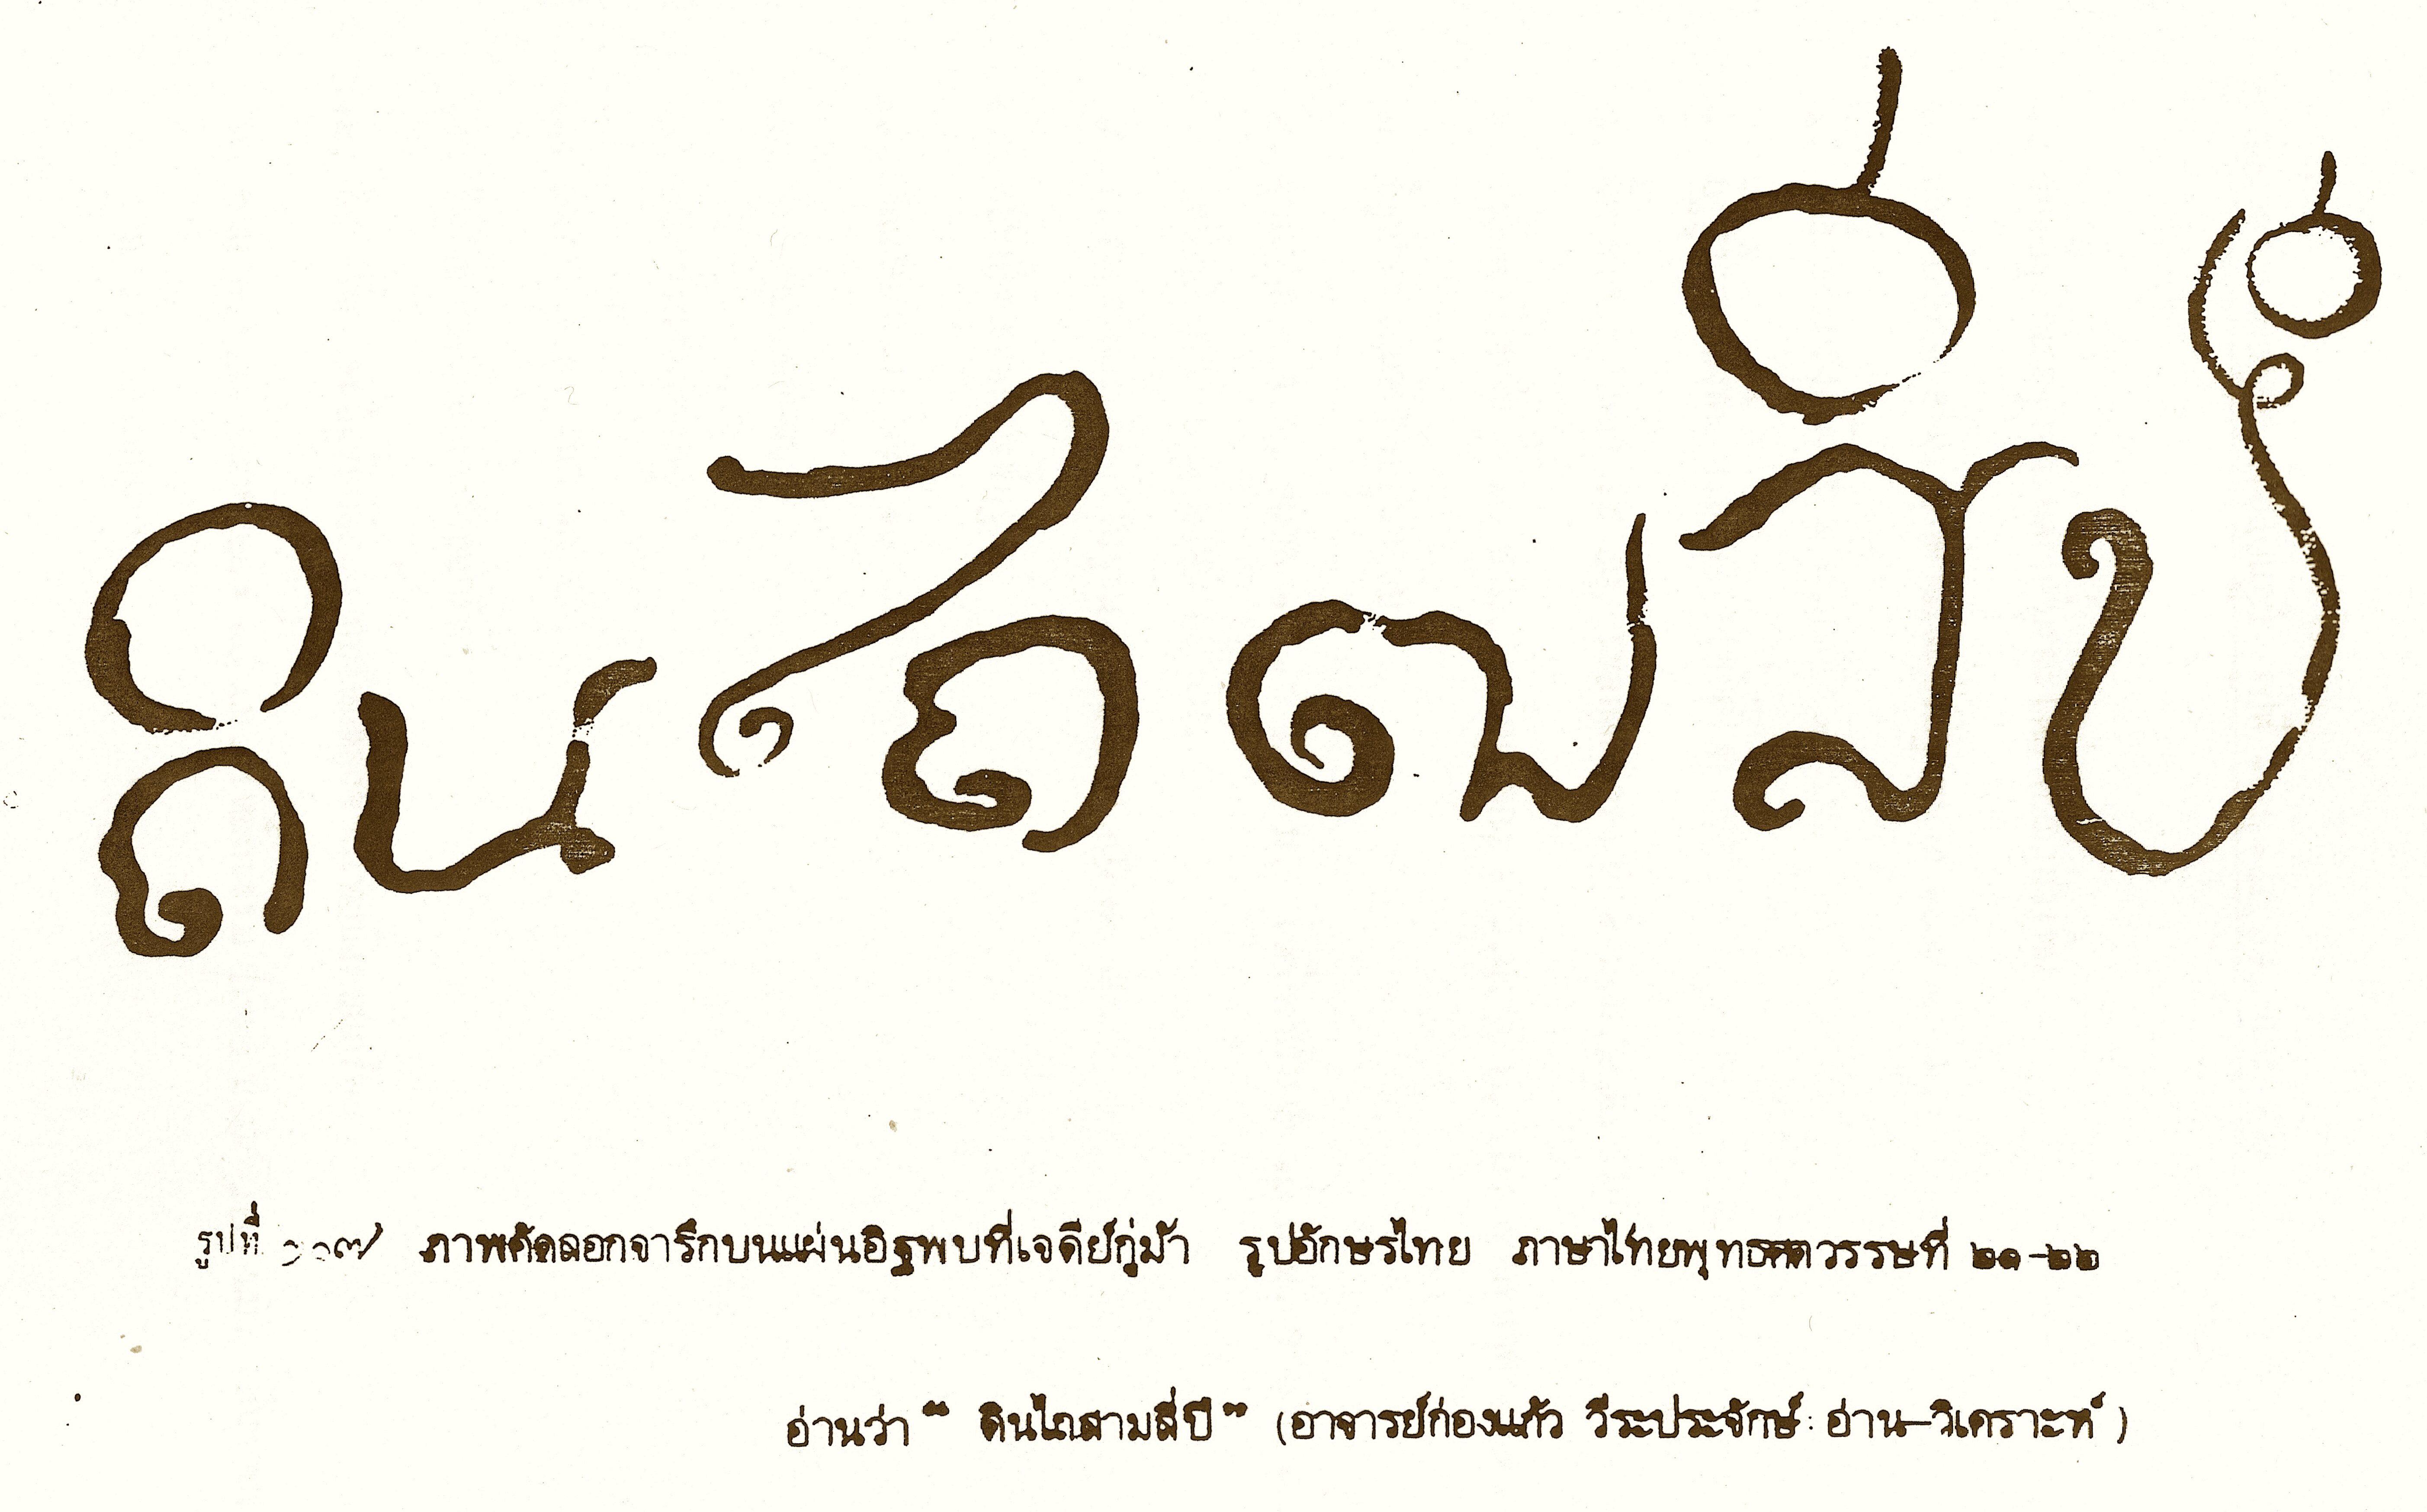 ดินไถ ๓ สี่ปี
รูปที่ ๑๑๗ ภาพคัดลอกจารึกบนแผ่นอิฐพบที่เจดีย์กู่ม้า รูปอักษรไทย ภาษาไทยพุทธศตวรรษที่ ๒๑-๒๒
อ่านว่า “ ดินไถสามสี่ปี ” (อาจารย์ก่องแก้ว วีระประจักษ์: อ่าน-วิเคราะห์ )